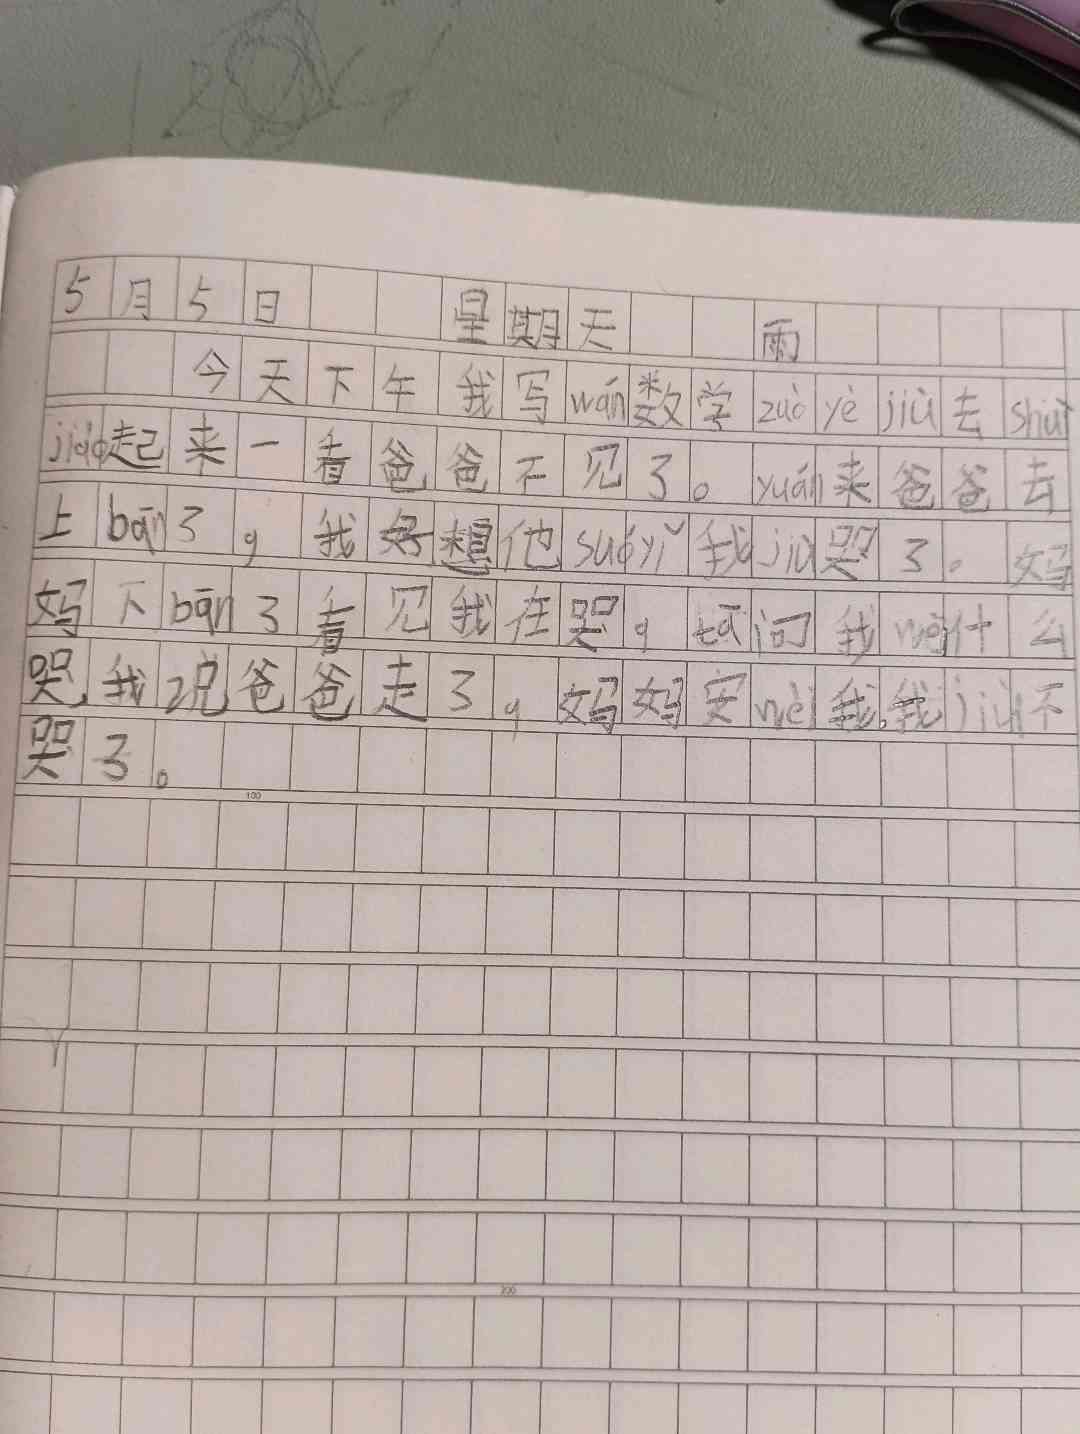 5月5日 星期天 雨
今天下午我写wán数学zuò yè jiù去shuì
jiào起来一看爸爸不见了。yuán来爸爸去
上bān了，我好想他suóyǐ我jiù哭了。妈
妈下bān了看见我在哭，tā问我wèi什么
哭，我说爸爸走了，妈妈安wèi我，我jiù不
哭了。
100
200